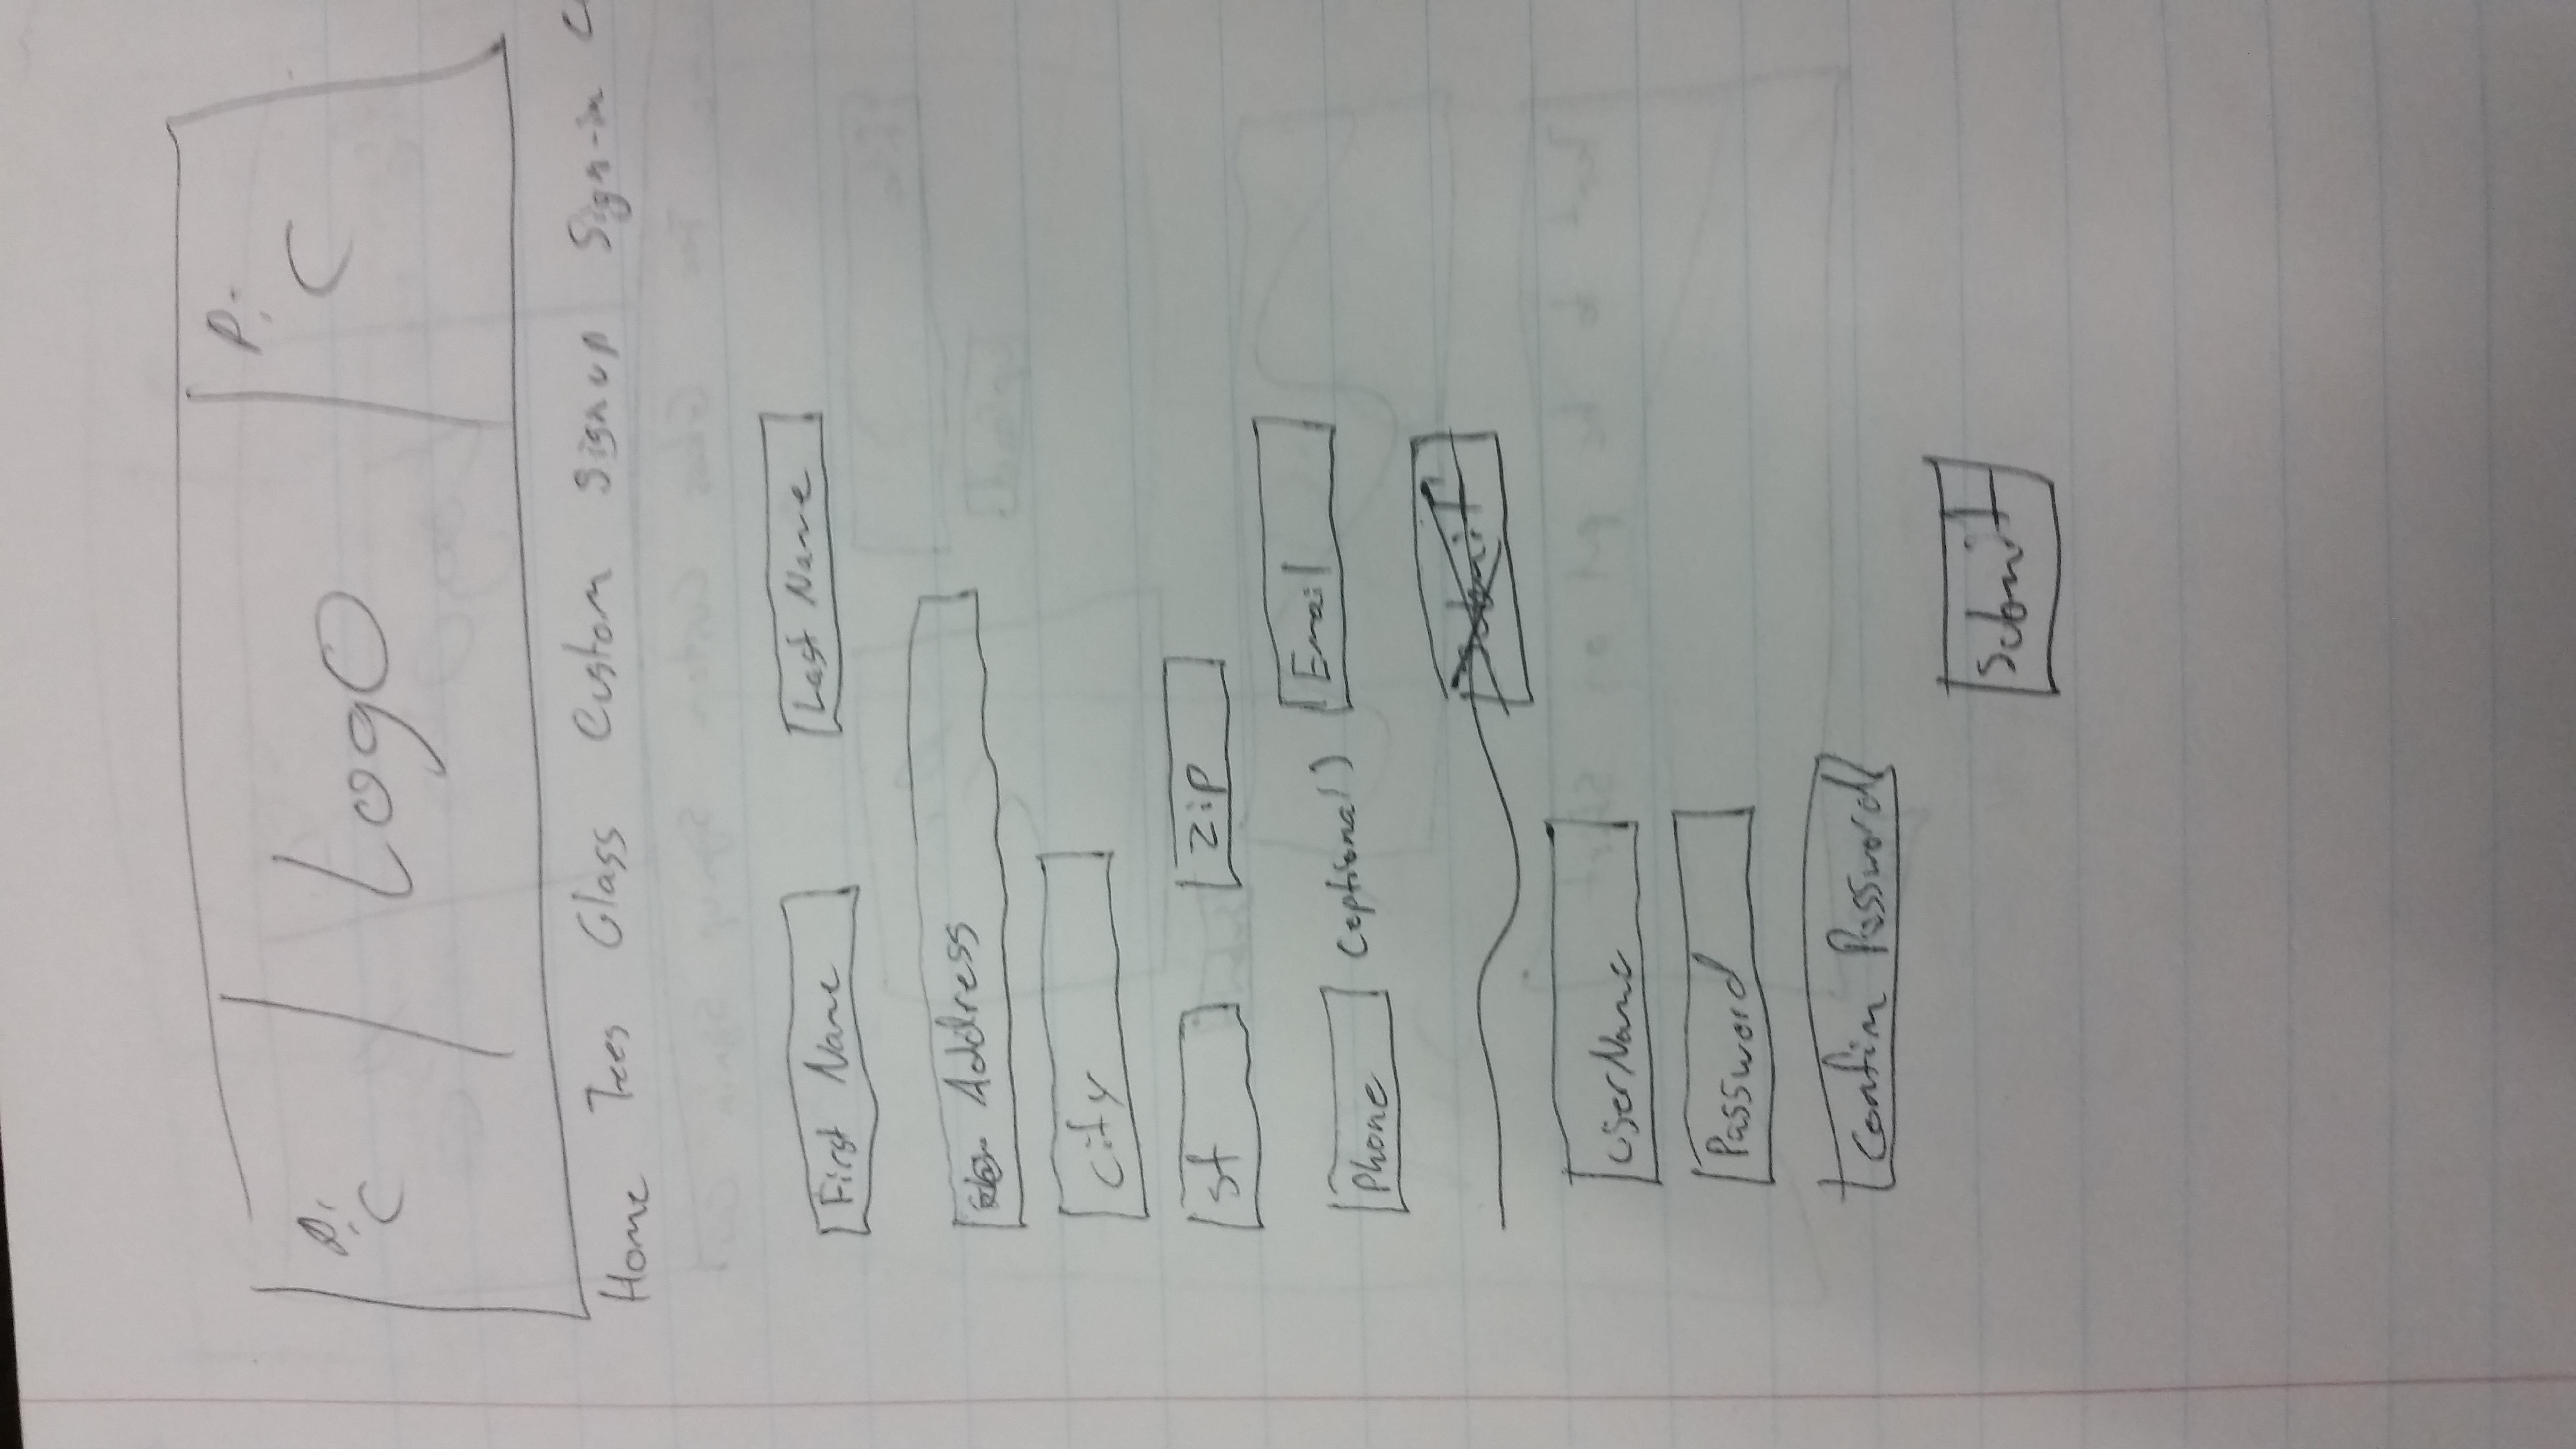 Pic Logo Pic
Home Tees Glass Custom Signup Sign-in C
First Name Last Name
Address
City
St Zip
Phone (optional) Email
Submit
UserName
Password
Confim Password
Submit